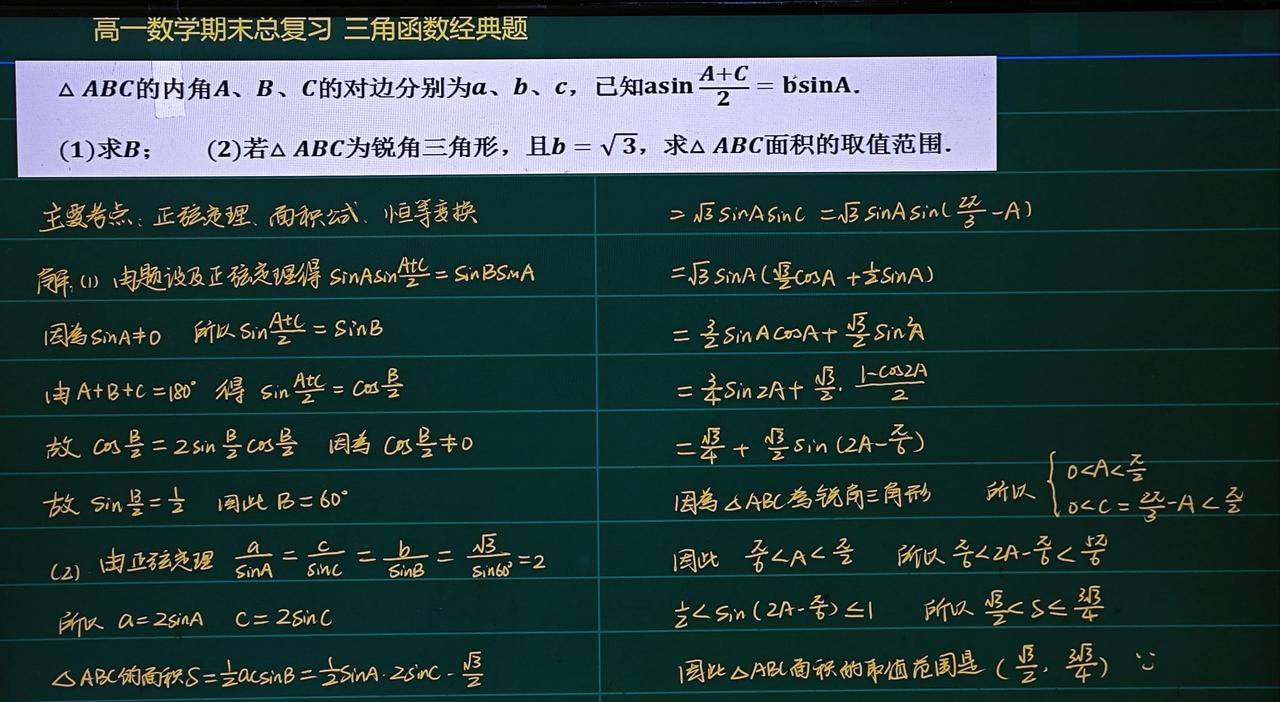 高一数学期末总复习 三角函数经典题
△ABC的内角A、B、C的对边分别为a、b、c，已知asin(A+C)/2 = bsinA.
(1)求B； (2)若△ABC为锐角三角形，且b = √3，求△ABC面积的取值范围.
主要考点：正弦定理、面积公式、恒等变换
解：(1) 由题设及正弦定理得 sinAsin(A+C)/2 = sinBsinA
因为sinA≠0 所以 sin(A+C)/2 = sinB
由A+B+C=180° 得 sin(A+C)/2 = cos B/2
故 cos B/2 = 2sin B/2 cos B/2 因为 cos B/2 ≠0
故 sin B/2 = 1/2 因此 B=60°
(2) 由正弦定理 a/sinA = c/sinC = b/sinB = √3/sin60° =2
所以 a=2sinA c=2sinC
△ABC的面积S=1/2 acsinB=1/2 sinA·2sinC·√3/2
=√3 sinAsinC =√3 sinAsin(2π/3 -A)
=√3 sinA(√3/2 cosA +1/2 sinA)
= 3/2 sinAcosA+ √3/2 sin²A
= 3/4 sin2A+ √3/2 · (1-cos2A)/2
= √3/4 + √3/2 sin(2A-π/6)
因为△ABC为锐角三角形 所以 { 0<A<π/2
0<C=2π/3 -A<π/2
因此 π/6<A<π/2 所以 π/6<2A-π/6<5π/6
1/2<sin(2A-π/6)≤1 所以 √3/2<S≤3√3/4
因此△ABC面积的取值范围是 (√3/2, 3√3/4)